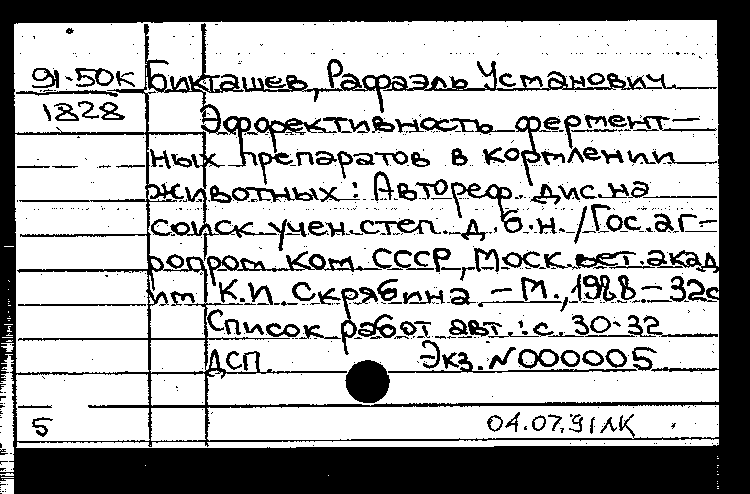 91-50К Бикташев, Рафаэль Усманович.
1828 Эффективность фермент-
ных препаратов в кормлении
животных: Автореф. дис. на
соиск. учен. степ. д. б. н. /Гос. аг-
ропром. ком. СССР, Моск. вет. акад
им К.И. Скрябина. - М., 1988 - 32с
Список работ авт.: с. 30-32
ДСП. Экз. N 000005
5 04.07.91 ЛК